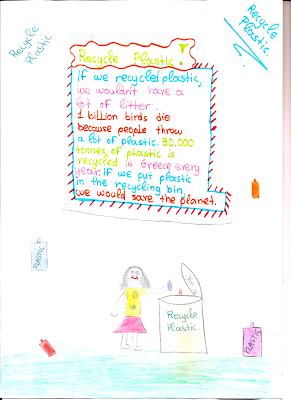 Recycle
Plastic
Recycle
Plastic.
Recycle Plastic!
If we recycled plastic,
we wouldn't have a
lot of litter.
1 billion birds die
because people throw
a lot of plastic. 30.000
tonnes of phastic is
recycled in Greece every
year. If we put plastic
in the recycling bin,
we would save the planet.
PLASTIC
Recycle
Plastic.
PLASTIC